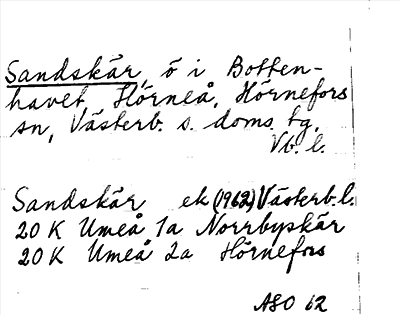 Sandskär, ö i Botten-
havet, Hörneå, Hörnefors
sn, Västerb. s. doms. tg,
Vb. l.
Sandskär ek (1962) Västerb. l.
20 K Umeå 1a Norrbyskär
20 K Umeå 2a Hörnefors
ASO 62